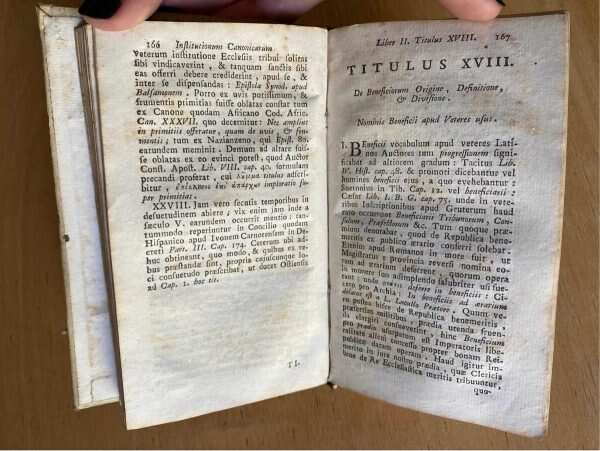 166 Institutionum Canonicarum
Veterum institutione Ecclesiis tribui solitas
sibi vindicaverint, & tanquam sanctis sibi
eas offerri debere crediderint, apud se, &
inter se dispensandas: Epistola Synod. apud
Balsamonem. Porro ex uvis potissimum, &
frumentis primitias fuisse oblatas constat tum
ex Canone quodam Africano Cod. Afric.
Can. XXXVII. quo decernitur: Nec amplius
in primitiis offeratur, quam de uvis, & fru-
mentis; tum ex Nazianzeno, qui Epist. 80.
earumdem meminit. Demum ad altare fuis-
se oblatas ex eo evinci potest, quod Auctor
Const. Apost. Lib. VIII. cap. 40. formulam
precandi profetat, cui titulus adscri-
bitur, imploratio su-
per primitias.
XXVIII. Jam vero secatis temporibus in
desuetudinem abiere; vix enim jam inde a
sæculo V. earundem occurrit mentio: tan-
tummodo reperiuntur in Concilio quodam
Hispanico apud Ivonem Carnotensem in De-
creti Part. III. Cap. 174. Ceterum ubi ad-
huc obtineant, quo modo, & quibus ex re-
bus præstandæ sint, propria cujuscunque lo-
ci consuetudo præscribat, ut docet Ostiensis
ad Cap. 1. hoc tit.
TI.
Liber II. Titulus XVIII. 167
TITULUS XVIII.
De Beneficiorum Origine, Definitione,
& Divisione.
Nominis Beneficii apud Veteres usus.
I. Beneficii vocabulum apud veteres Lati-
nos Auctores tum progressionem signi-
ficabat ad altiorem gradum: Tacitus Lib.
IV. Hist. cap. 48. & promoti dicebantur vel
homines beneficii ejus, a quo evehebantur:
Suetonius in Tib. Cap. 12. vel beneficiarii:
Cæsar Lib. I. B. G. cap. 75. unde in vete-
ribus Inscriptionibus apud Gruterum haud
raro occurrunt Beneficiarii Tribunorum, Con-
sulum, Præfectorum &c. Tum quoque præ-
mium denotabat, quod de Republica bene-
meritis ex publico ærario conferri solebat.
Etenim apud Romanos in more fuit, ut
Magistratus e provincia reversi nomina eo-
rum ad ærarium deferrent, quorum opera
in munere suo adimplendo salubriter usi fue-
rant; unde ortum deferre in beneficiis: Ci-
cero pro Archia: In beneficiis ad ærarium
delatus est a L. Lucullo Prætore. Quum ve-
ro postea hisce de Republica benemeritis,
præsertim militibus, prædia utenda fruen-
da elargiri consuevetint, hinc Beneficium
pro prædio usurpatum est Imperatoris libe-
ralitate alieni concessa propter bonam Rei-
publicæ datam operam. Haud igitur im-
merito in jure nostro prædia, quæ Clericis
bene de Re Ecclesiastica meritis tribuuntur,
quo-